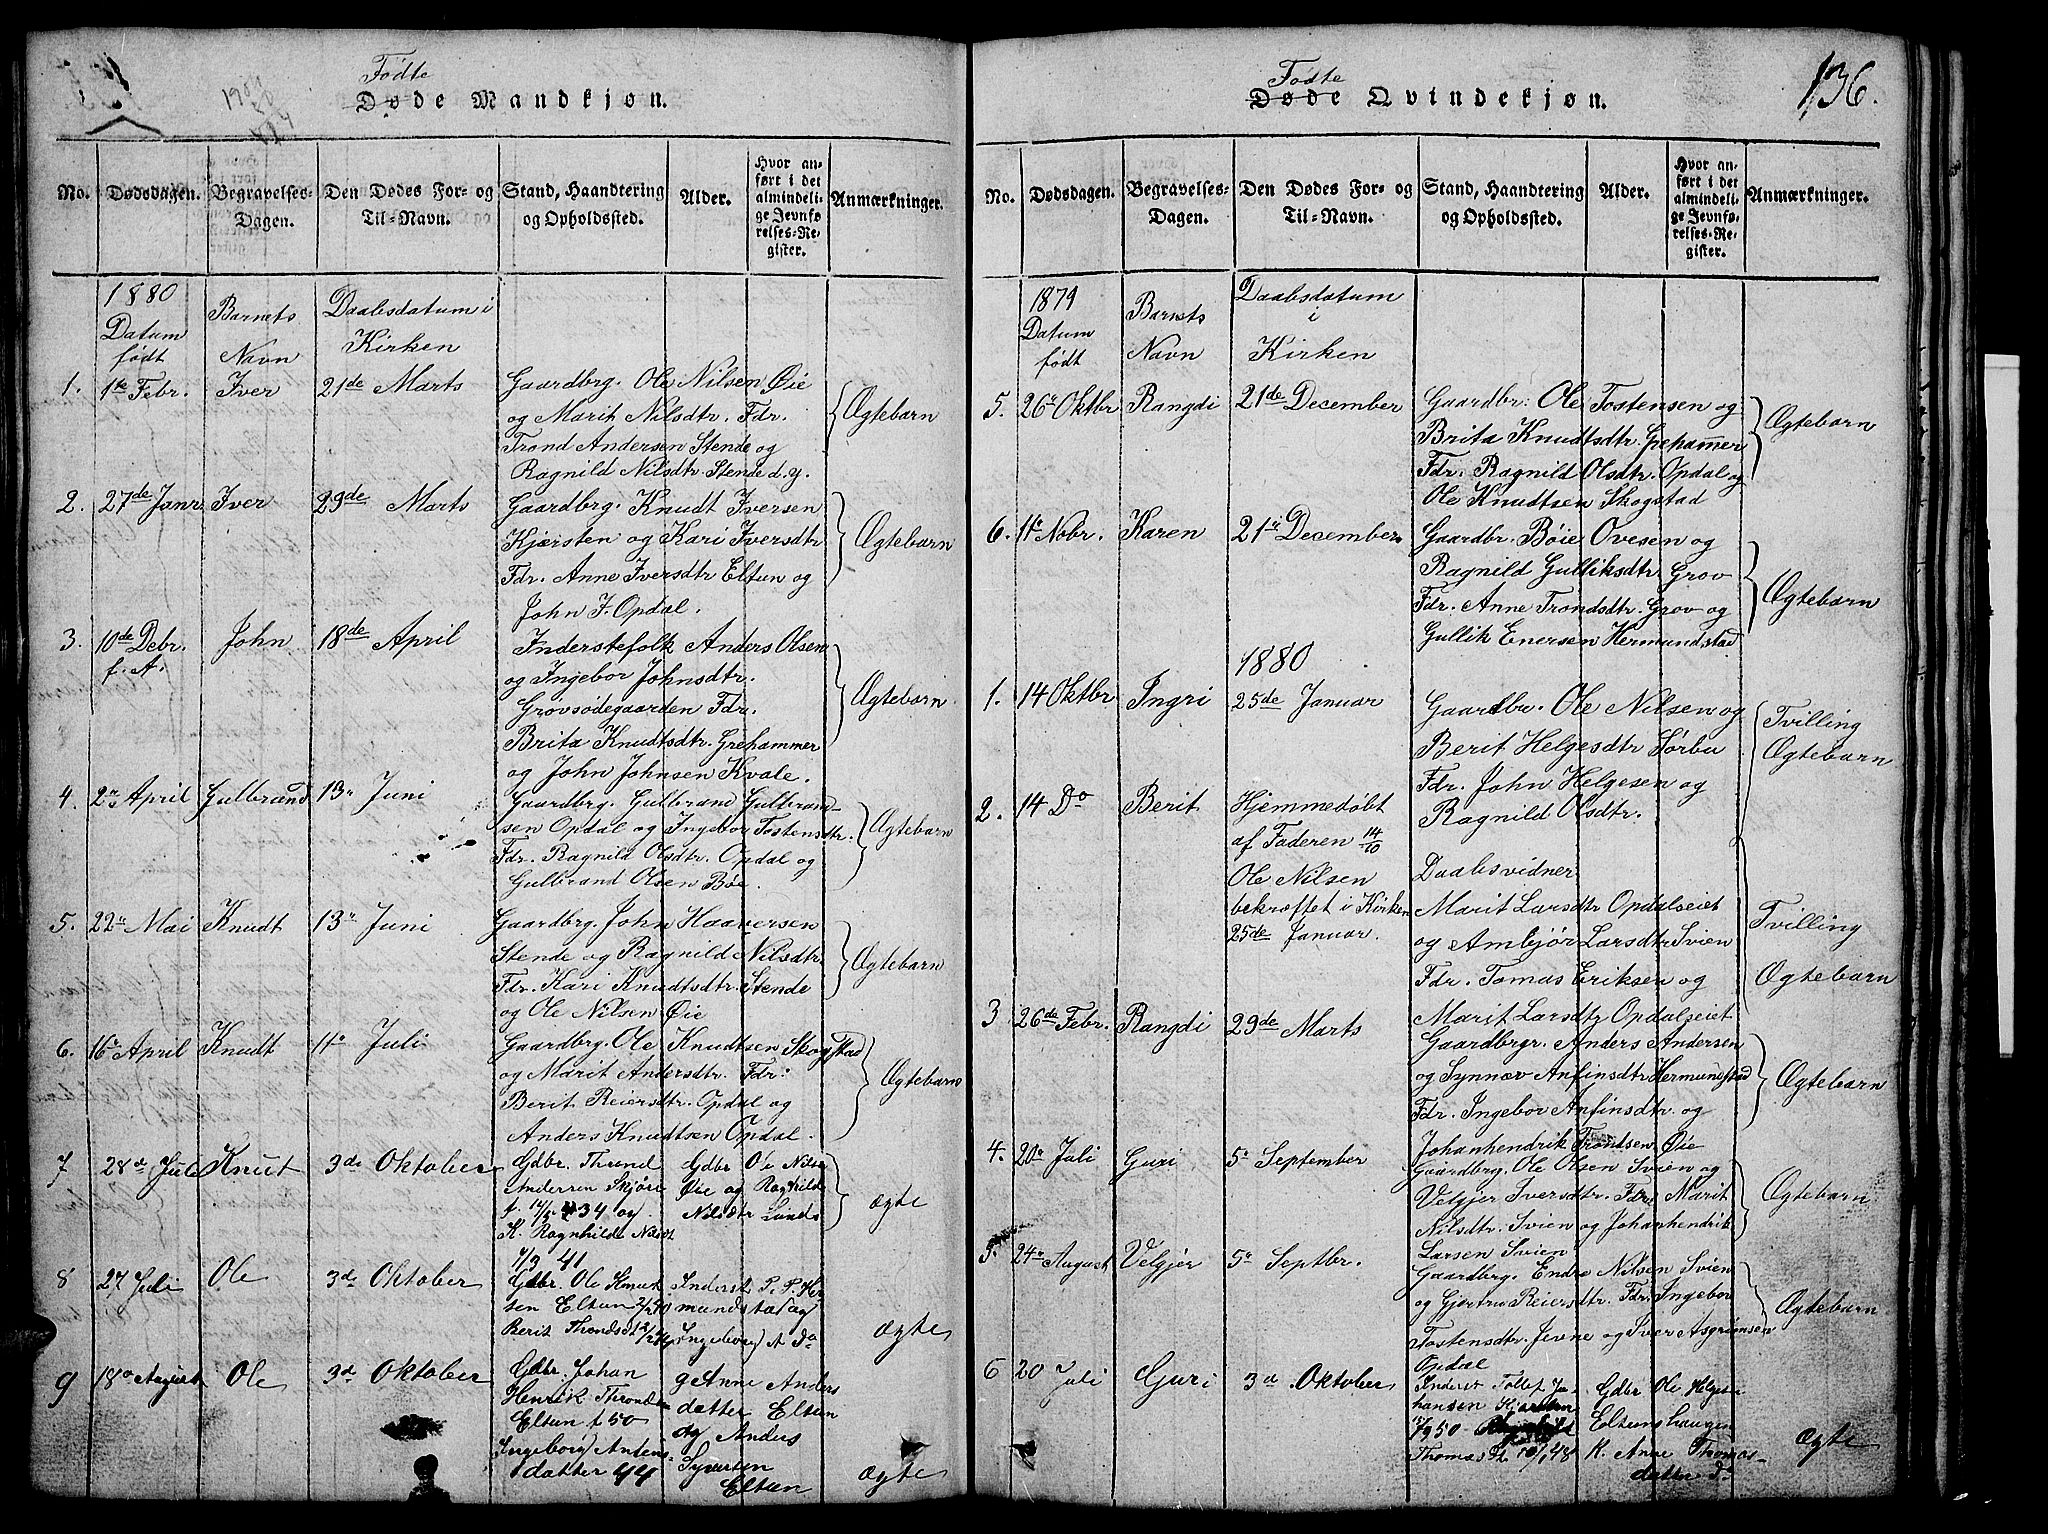 Fødte
Døde Mandkjøn.
No.
Dødsdagen.
Begravelses-
Dagen.
Den Dødes For- og
Til-Navn.
Stand, Haandtering
og Opholdssted.
Alder.
Hvor an-
ført i det
almindeli-
ge Jevnfø-
relses-Re-
gister.
Anmærkninger.
1880
Datum
født
Barnets
Navn
Daabsdatum i
Kirken
1. 1te Febr. Iver 21de Marts Gaardbrg. Ole Nilsen Øie
og Marit Nilsdtr. Fdr.
Trond Andersen Stende og
Ragnild Nilsdtr. Stende d.y.
Ægtebarn
2. 27de Janr Iver 29de Marts Gaardbrg. Knudt Iversen
Kjørsten og Kari Iversdtr
Fdr. Anne Iversdtr Eltun og
John I. Opdal.
Ægtebarn
3. 10de Debr. John 18de April Inderstefolk Anders Olsen
f. A. og Ingebor Johnsdtr.
Grovsødegaarden Fdr.
Brita Knudtsdtr. Grehammer
og John Johnsen Kvale.
Ægtebarn
4. 2n April Gulbrand 13n Juni Gaardbrg. Gulbrand Gulbrand-
sen Opdal og Ingebor Tostensdtr.
Fdr. Ragnild Olsdtr. Opdal og
Gulbrand Olsen Bøe.
Ægtebarn
5. 22n Mai Knudt 13n Juni Gaardbrg. John Haaversen
Stende og Ragnild Nilsdtr.
Fdr. Kari Knudtsdtr. Stende
og Ole Nilsen Øie
Ægtebarn
6. 16n April Knudt 11n Juli Gaardbrg. Ole Knudtsen Skogstad
og Marit Andersdtr. Fdr:
Berit Reiersdtr. Opdal og
Anders Knudtsen Opdal.
Ægtebarn
7 28d Juli Knut 3de Oktober Gdbr. Thrond
Andersen Skjøri
34 og
K. Ragnhilde Nilsdt
7/3 41
Gdbr Ole Nilsen
Øie og Ragnhilde
Nilsdtr Lunde
ægte
8 27 Juli Ole 3de Oktober Gdbr. Ole Knut
sen Eltun 2/2 40
Berit Throndsdt
Inderst P. P. Her
mundstad og
Ingeborg A Do
ægte
9 18n August Ole 3de Oktober Gdbr. Johan
Henrik Thronds
Eltun f 50
Ingeborg Antens
datter 44
g Anne Anders
datter Eltun
og Anders
Syversen
Eltun
ægte
Fødte
Døde Qvindekjøn.
136.
No.
Dødsdagen.
Begravelses-
Dagen.
Den Dødes For- og
Til-Navn.
Stand, Haandtering
og Opholdssted.
Alder.
Hvor an-
ført i det
almindeli-
ge Jevnfø-
relses-Re-
gister.
Anmærkninger.
1879
Datum
født
Barnets
Navn
Daabsdatum
i
Kirken
5. 26n Oktbr Rangdi 21de December Gaardbr: Ole Tostensen og
Brita Knudtsdtr. Grehammer
Fdr. Ragnild Olsdtr. Opdal og
Ole Knudtsen Skogstad
Ægtebarn
6. 11n Nobr. Karen 21n December Gaardbr. Bøie Ovesen og
Ragnild Gulliksdtr. Grov
Fdr. Anne Trondsdtr. Grov og
Gullik Enersen Hermundstad
Ægtebarn
1880
1. 14 Oktbr Ingri 25de Januar Gaardbr. Ole Nilsen og
Berit Helgesdtr Sørbu
Fdr. John Helgesen og
Ragnild Olsdtr.
Tvilling
Ægtebarn
2. 14 Do Berit Hjemmedøbt
af Faderen 14/10
Ole Nilsen
bekræftet i Kirken
25de Januar.
Daabsvidner
Marit Larsdtr Opdalseiet
og Ambjør Larsdtr Svien
Fdr. Tomas Eriksen og
Marit Larsdtr Opdalseiet
Tvilling
Ægtebarn
3 26de Febr. Rangdi 29de Marts Gaardbrgr. Anders Andersen
og Synnøv Anfinsdtr Hermundstad
Fdr. Ingebor Anfinsdtr. og
Johanhendrik Trondsen Øie
Ægtebarn
4. 20n Juli Guri 5n September Gaardbrg. Ole Olsen Svien og
Velgjer Iversdtr. Fdr. Marit
Nilsdtr. Svien og Johanhendrik
Larsen Svien
Ægtebarn
5. 24n August Velgjer 5n Septbr. Gaardbrg. Endre Nilsen Svien
og Gjertru Reiersdtr. Fdr. Ingebor
Tostensdtr. Jevne og Iver Asgrimsen
Opdal
Ægtebarn
6 20 Juli Guri 3d Oktober Inderst Tollef Jo-
hansen Kjørsten
50
Thomasdt 48
Gdbr Ole Helges
Eltunshaugen
K. Anne Thomas-
datter Do
Ægte